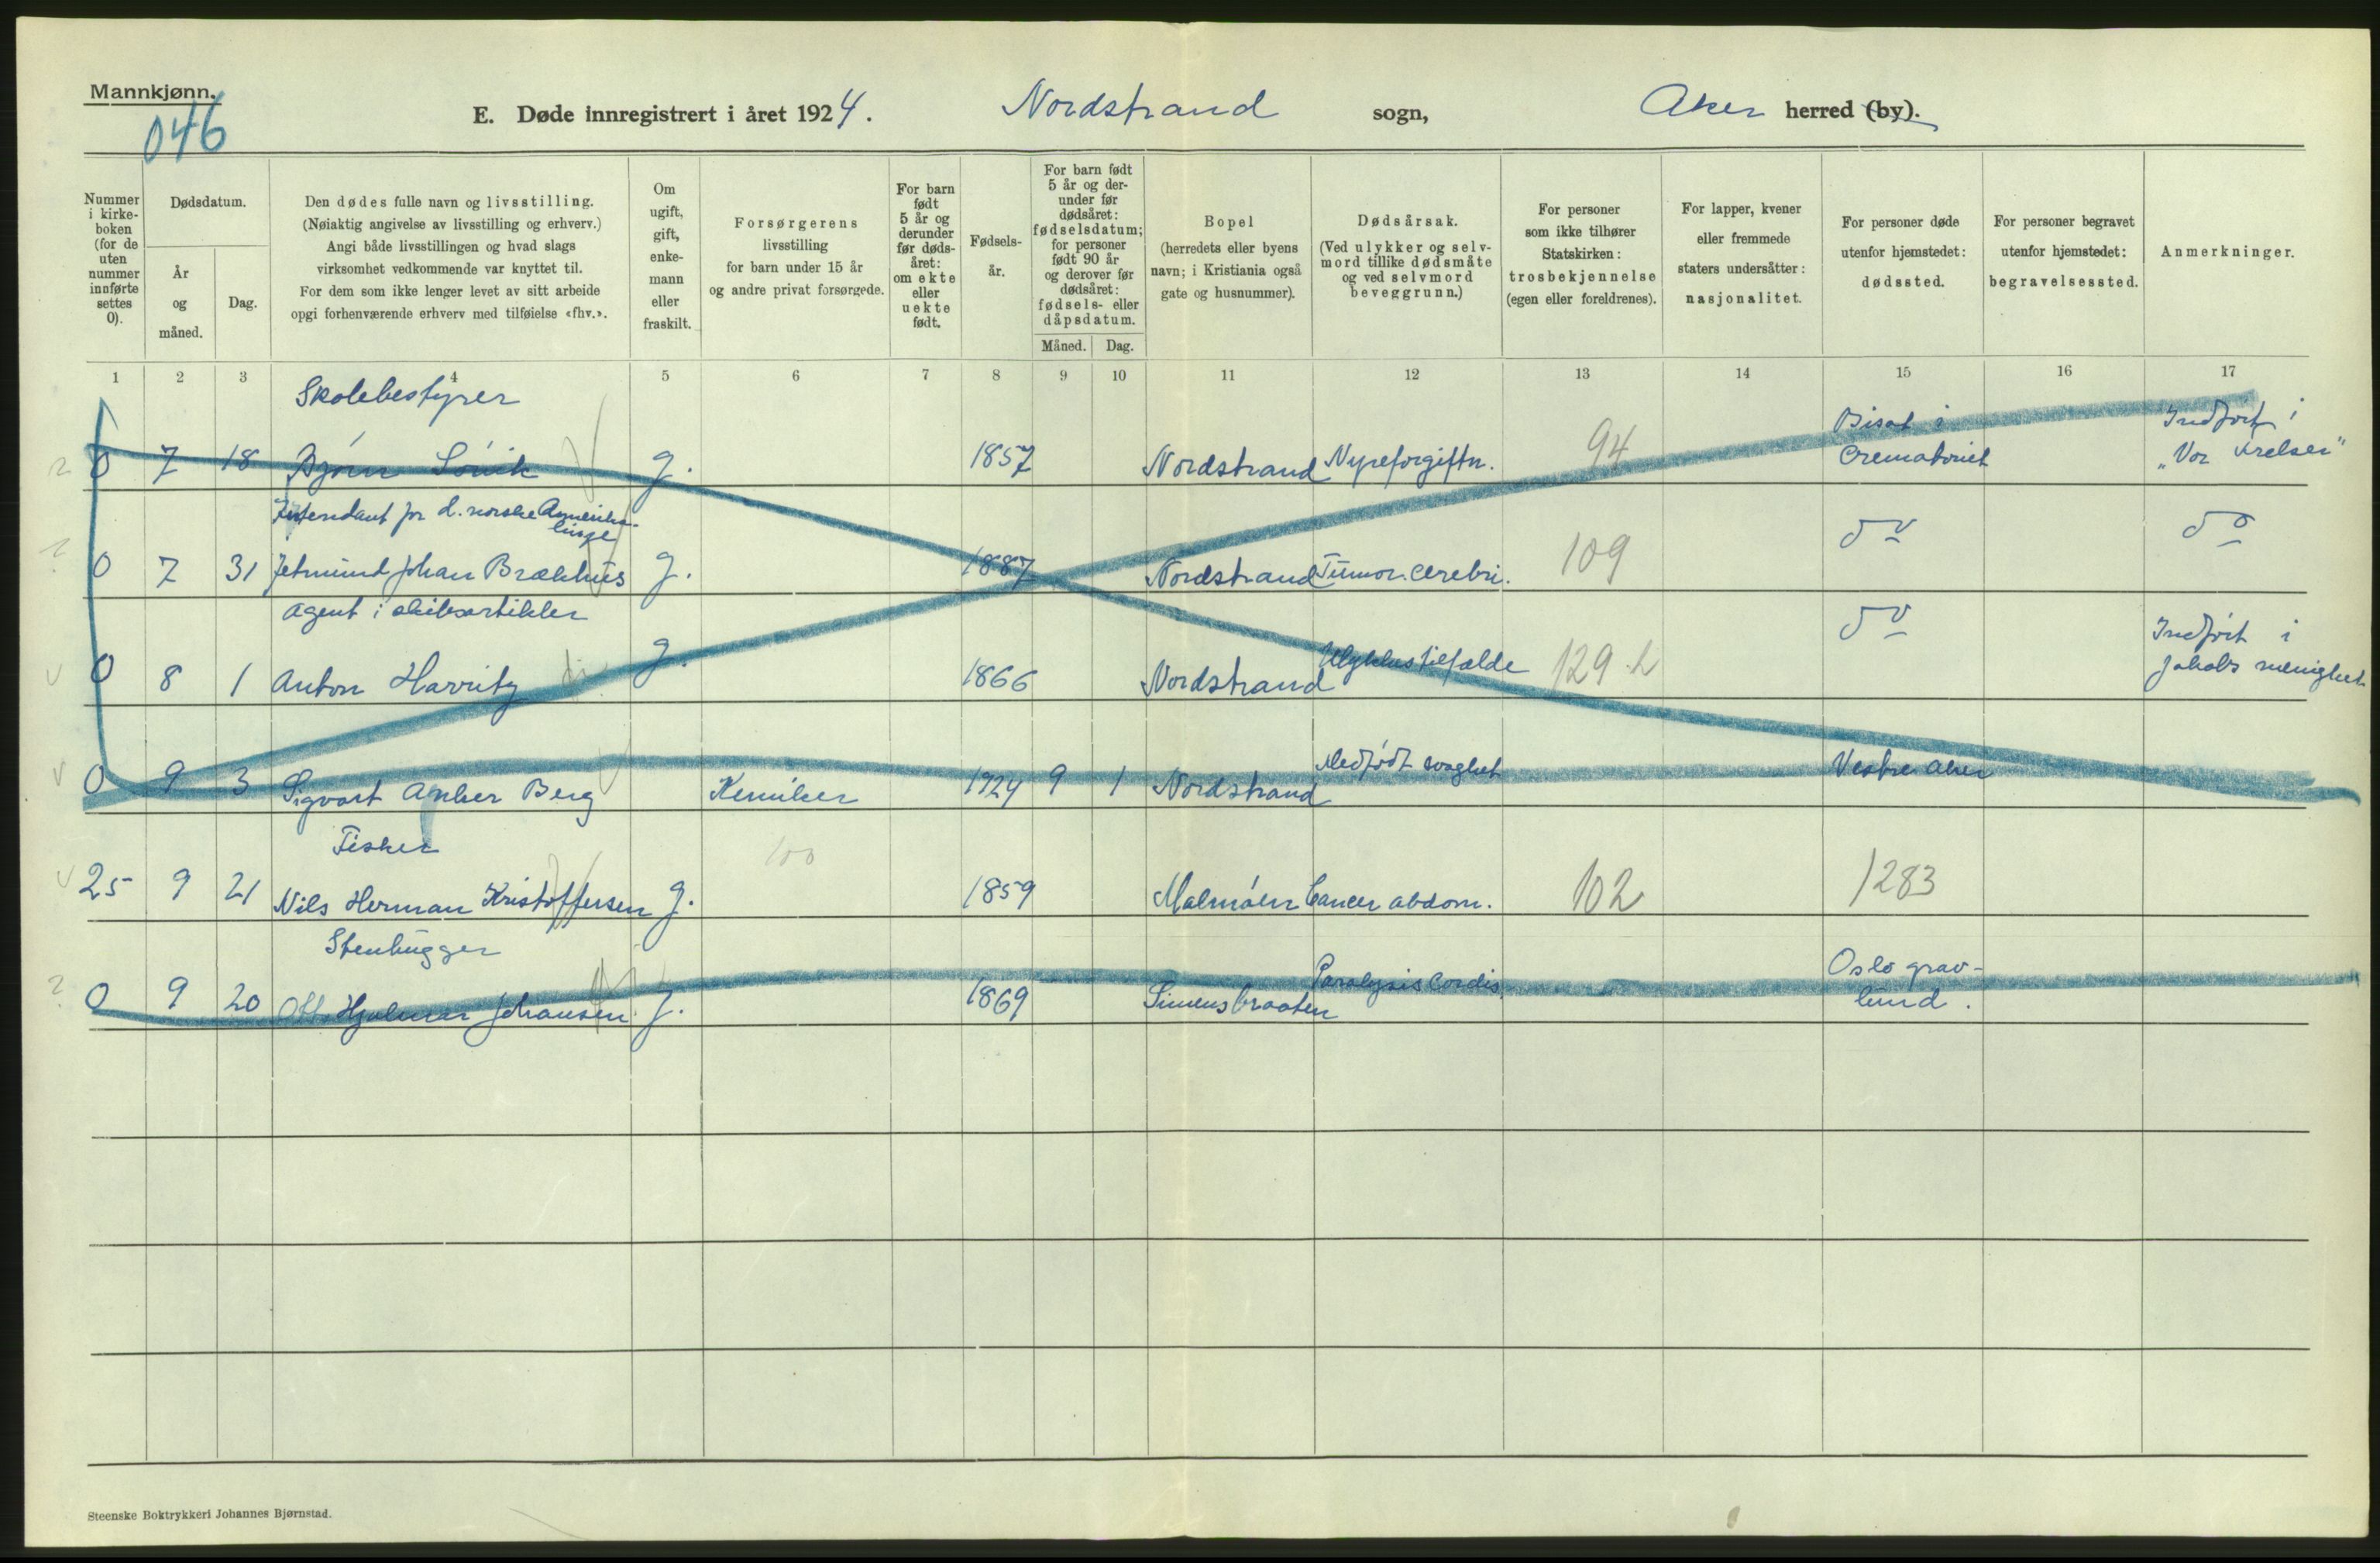 Mannkjønn.
046
E. Døde innregistrert i året 1924.
Nordstrand sogn,
Aker herred (by).
Nummer i kirke-boken (for de uten nummer innførte settes 0).
Dødsdatum.
År og måned.
Dag.
Den dødes fulle navn og livsstilling.
(Nøiaktig angivelse av livsstilling og erhverv.)
Angi både livsstillingen og hvad slags
virksomhet vedkommende var knyttet til.
For dem som ikke lenger levet av sitt arbeide
opgi forhenværende erhverv med tilføielse «fhv.».
Om ugift, gift, enke-mann eller fraskilt.
Forsørgerens
livsstilling
for barn under 15 år
og andre privat forsørgede.
For barn født 5 år og derunder før døds-året: om ekte eller uekte født.
Fødsels-år.
For barn født 5 år og der-under før dødsåret: fødselsdatum; for personer født 90 år og derover før dødsåret: fødsels- eller dåpsdatum.
Måned.
Dag.
Bopel
(herredets eller byens
navn; i Kristiania også
gate og husnummer).
Dødsårsak.
(Ved ulykker og selv-
mord tillike dødsmåte
og ved selvmord
beveggrunn.)
For personer
som ikke tilhører
Statskirken:
trosbekjennelse
(egen eller foreldrenes).
For lapper, kvener
eller fremmede
staters undersåtter:
nasjonalitet.
For personer døde
utenfor hjemstedet:
dødssted.
For personer begravet
utenfor hjemstedet:
begravelsessted.
Anmerkninger.
1 2 3 4 5 6 7 8 9 10 11 12 13 14 15 16 17
Skolebestyrer
0 7 18 Bjørn Sövik g. 1857 Nordstrand Nyreforgiftn. 94 Bisat i Crematoriet Indført i "Vor Frelser"
Intendant for d. norske Amerika-linje
0 7 31 Jetmund Johan Brækhus g. 1887 Nordstrand Tumor. cerebri. 109 do do
Agent i skibsartikler
0 8 1 Anton Harritz g. 1866 Nordstrand Ulykkestilfælde 129 do Indført i Jakobs menighet
0 9 3 Sigvart Anker Berg Kemiker 1924 9 1 Nordstrand Medfödt svaghet Vestre Aker
Fisker
100
25 9 21 Nils Herman Kristoffersen g. 1859 Malmöen Cancer abdom. 102 1283
Stenhugger
0 9 20 Otto Hjalmar Johansen g. 1869 Simensbraaten Paralysis Cordis. Oslo grav-lund.
Steenske Boktrykkeri Johannes Bjørnstad.